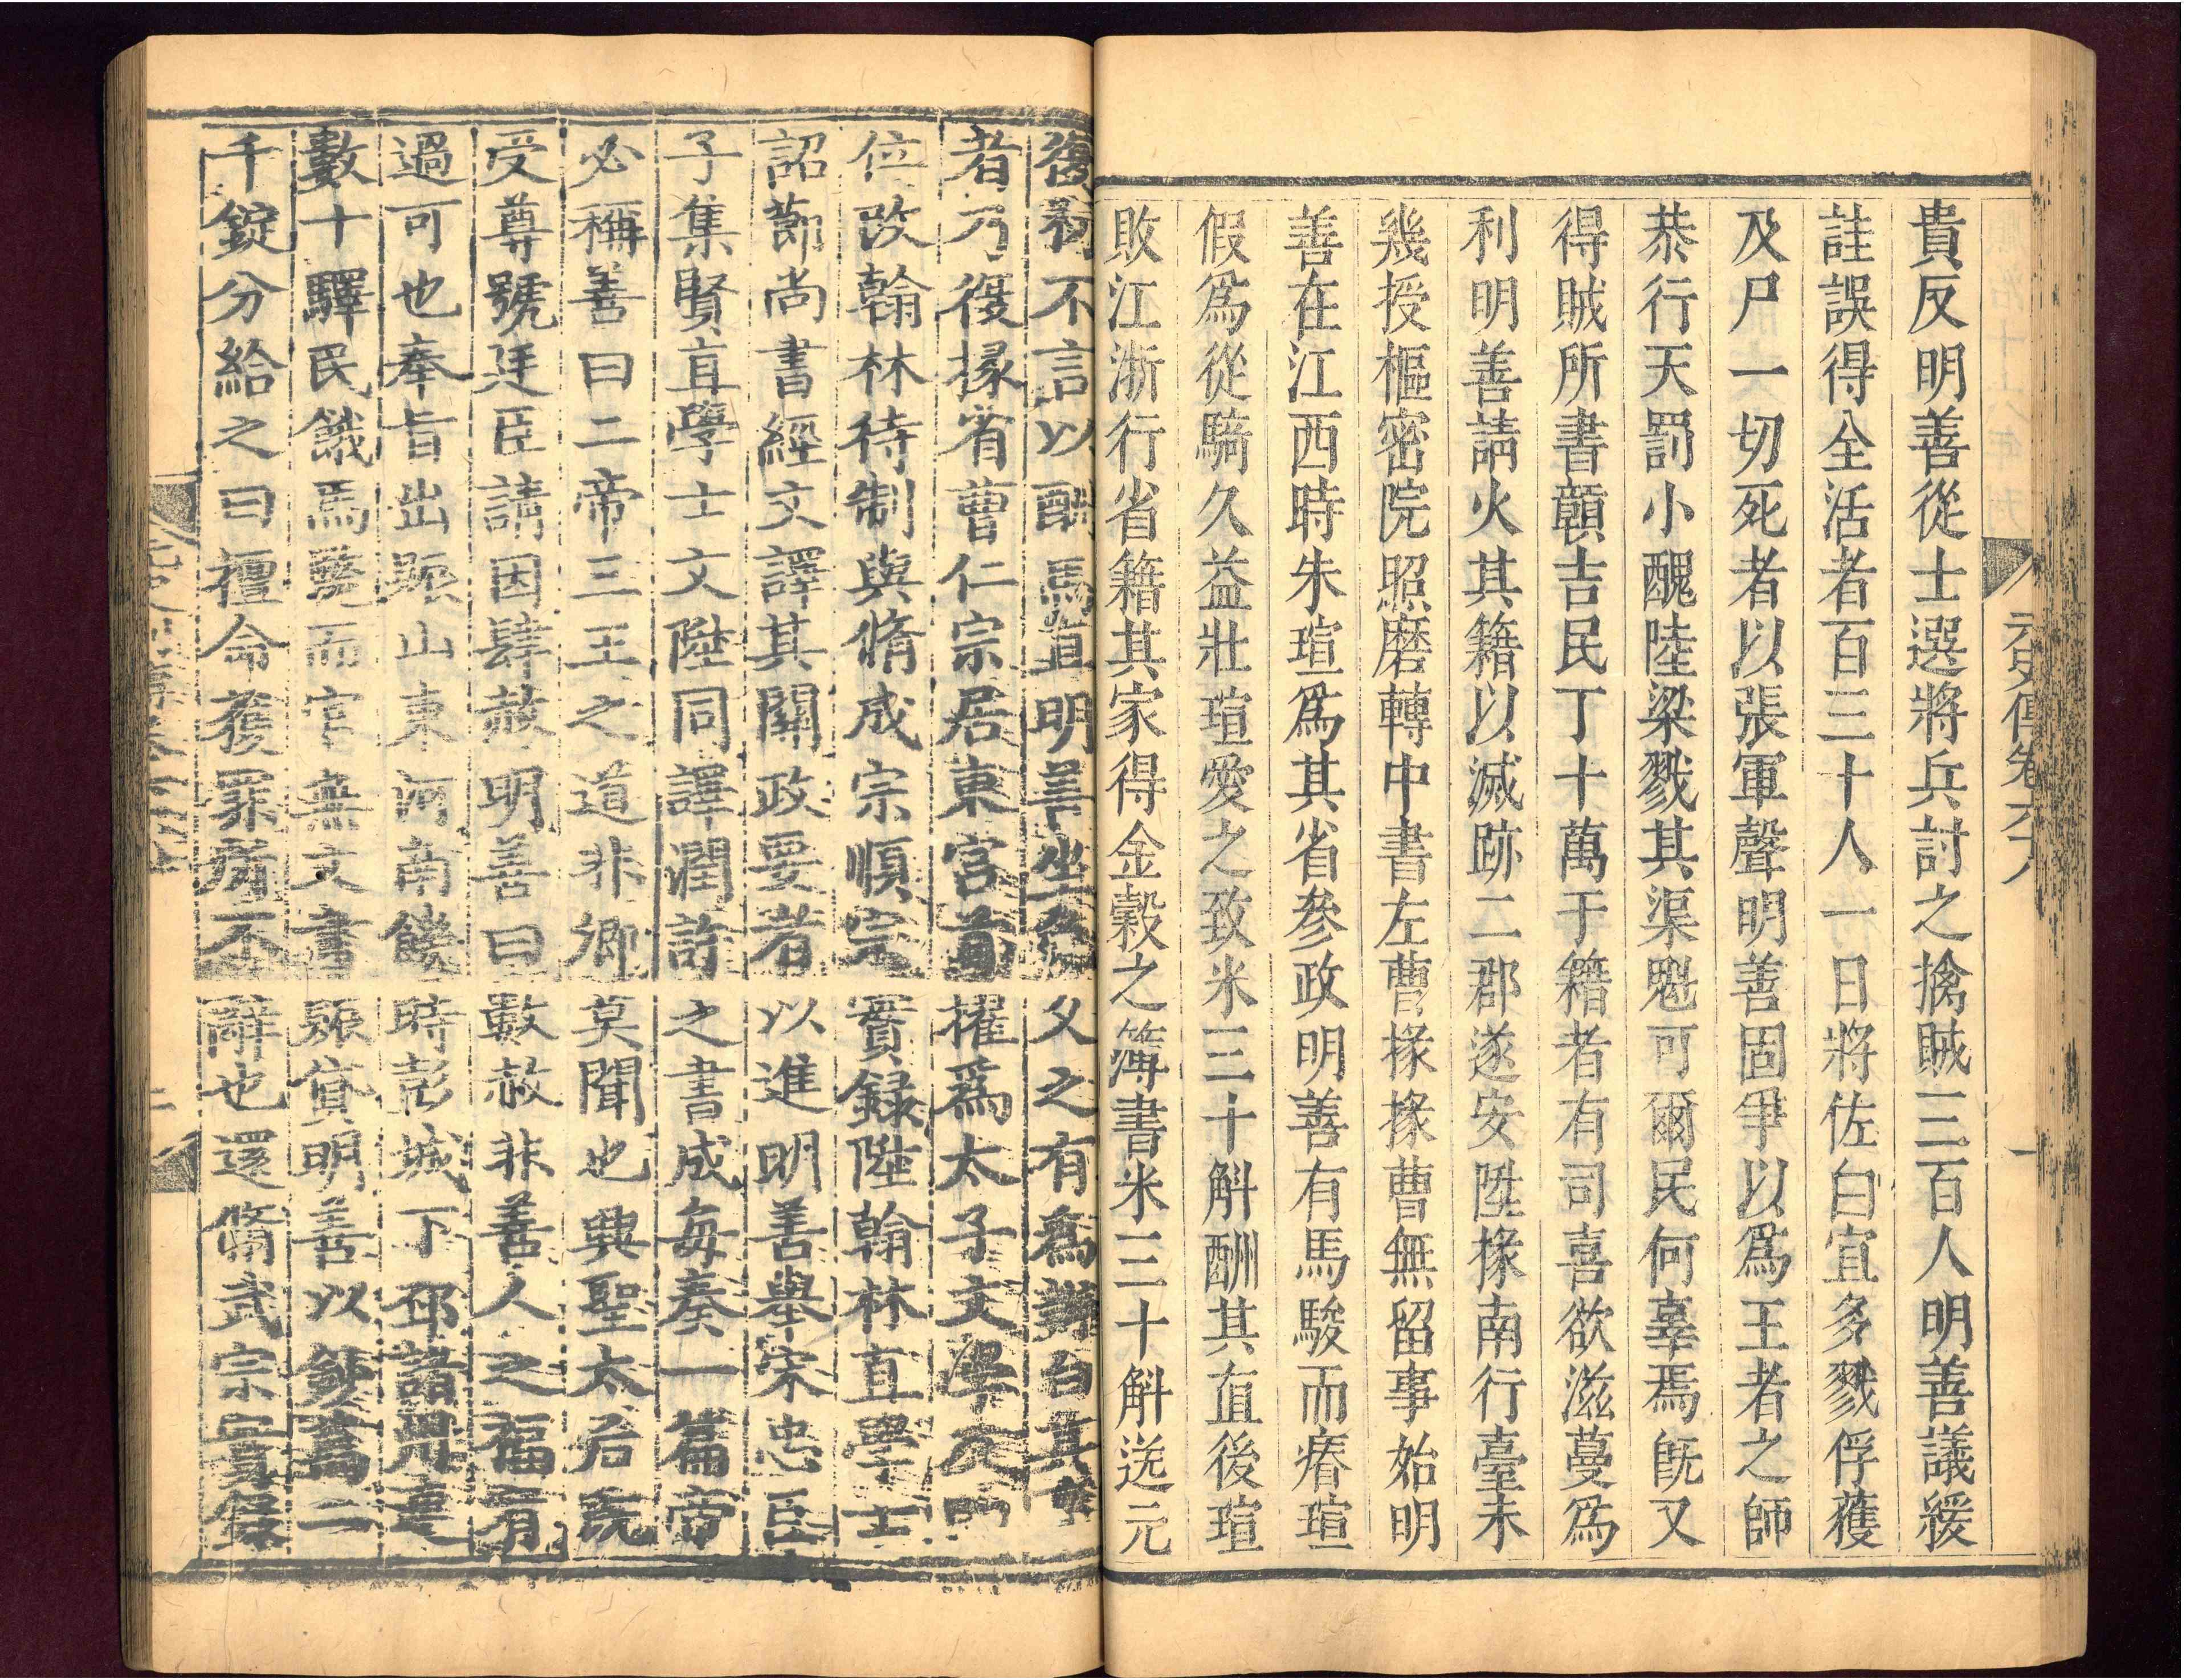 元史傳卷六十八
一
貴反明善從士選將兵討之擒賊三百人明善議緩
詿誤得全活者百三十人一日將佐白宜多戮俘獲
及尸一切死者以張軍聲明善固爭以爲王者之師
恭行天罰小醜陸梁戮其渠魁可爾民何辜焉旣又
得賊所書顫吉民丁十萬于籍者有司喜欲滋蔓爲
利明善請火其籍以滅跡二郡遂安陞掾南行臺未
幾授樞密院照磨轉中書左曹掾掾曹無留事始明
善在江西時朱瑄爲其省參政明善有馬駿而瘠瑄
假爲從騎久益壯瑄愛之致米三十斛酬其直後瑄
敗江浙行省籍其家得金穀之簿書米三十斛送元
復初不言以酬馬直明善坐免久之有爲辯白其事
者乃復掾省曹仁宗居東宮首擢爲太子文學及即
位改翰林待制與脩成宗順宗實錄陞翰林直學士
詔節尚書經文譯其關政要者以進明善舉宋忠臣
子集賢直學士文陞同譯潤許之書成每奏一篇帝
必稱善曰二帝三王之道非卿莫聞也興聖太后旣
受尊號廷臣請因肆赦明善曰數赦非善人之福宥
過可也奉旨出賑山東河南饑時彭城下邳諸州連
數十驛民餓馬斃而官無文書賑貸明善以鈔萬二
千錠分給之曰擅命獲罪所不辭也還脩武宗實錄